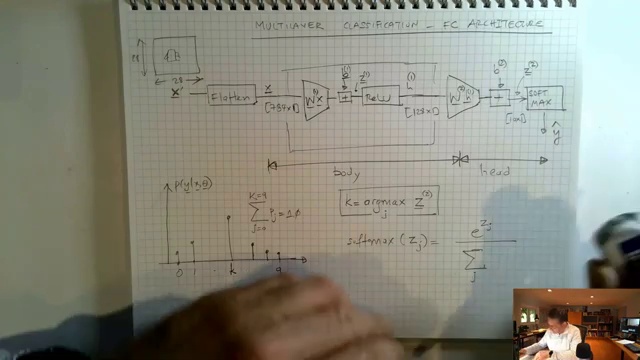 MULTILAYER CLASSIFICATION - FC ARCHITECTURE
28
28
X' Flatten x [784x1] W⁽¹⁾x b⁽¹⁾ + z⁽¹⁾ ReLU h⁽¹⁾ [128x1] W⁽²⁾h⁽¹⁾ b⁽²⁾ + z⁽²⁾ [10x1] SOFT MAX
ŷ
body head
P(y|x,θ)
K=9 Σ j=0 P_j = 1.0
K = argmax_j z⁽²⁾
softmax (z_j) = e^{z_j} / Σ_j
0 1 k 9